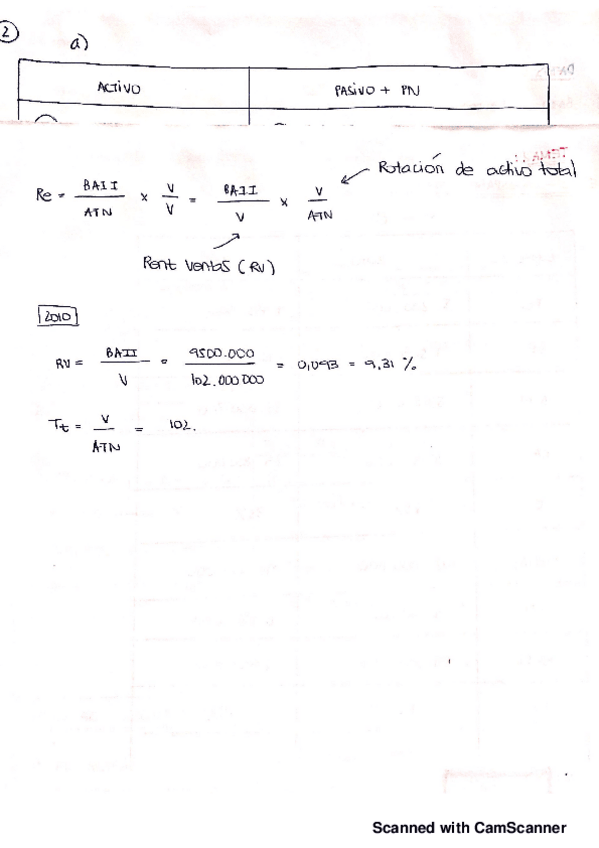 2 a)
ACTIVO PASIVO + PN
Re = BAII / ATN x V / V = BAII / V x V / ATN
Rotación de activo total
Rent ventas (RV)
2010
RV = BAII / V = 9500.000 / 102.000 000 = 0,093 = 9,31 %
Tt = V / ATN = 102.
Scanned with CamScanner